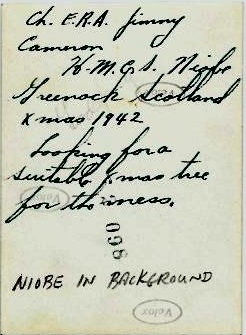 Ch. E.R.A. Jimmy
Cameron
H.M.C.S. Niobe
Greenock Scotland
Xmas 1942
Looking for a
suitable xmas tree
for the mess.
098
NIOBE IN BACKGROUND
Velox